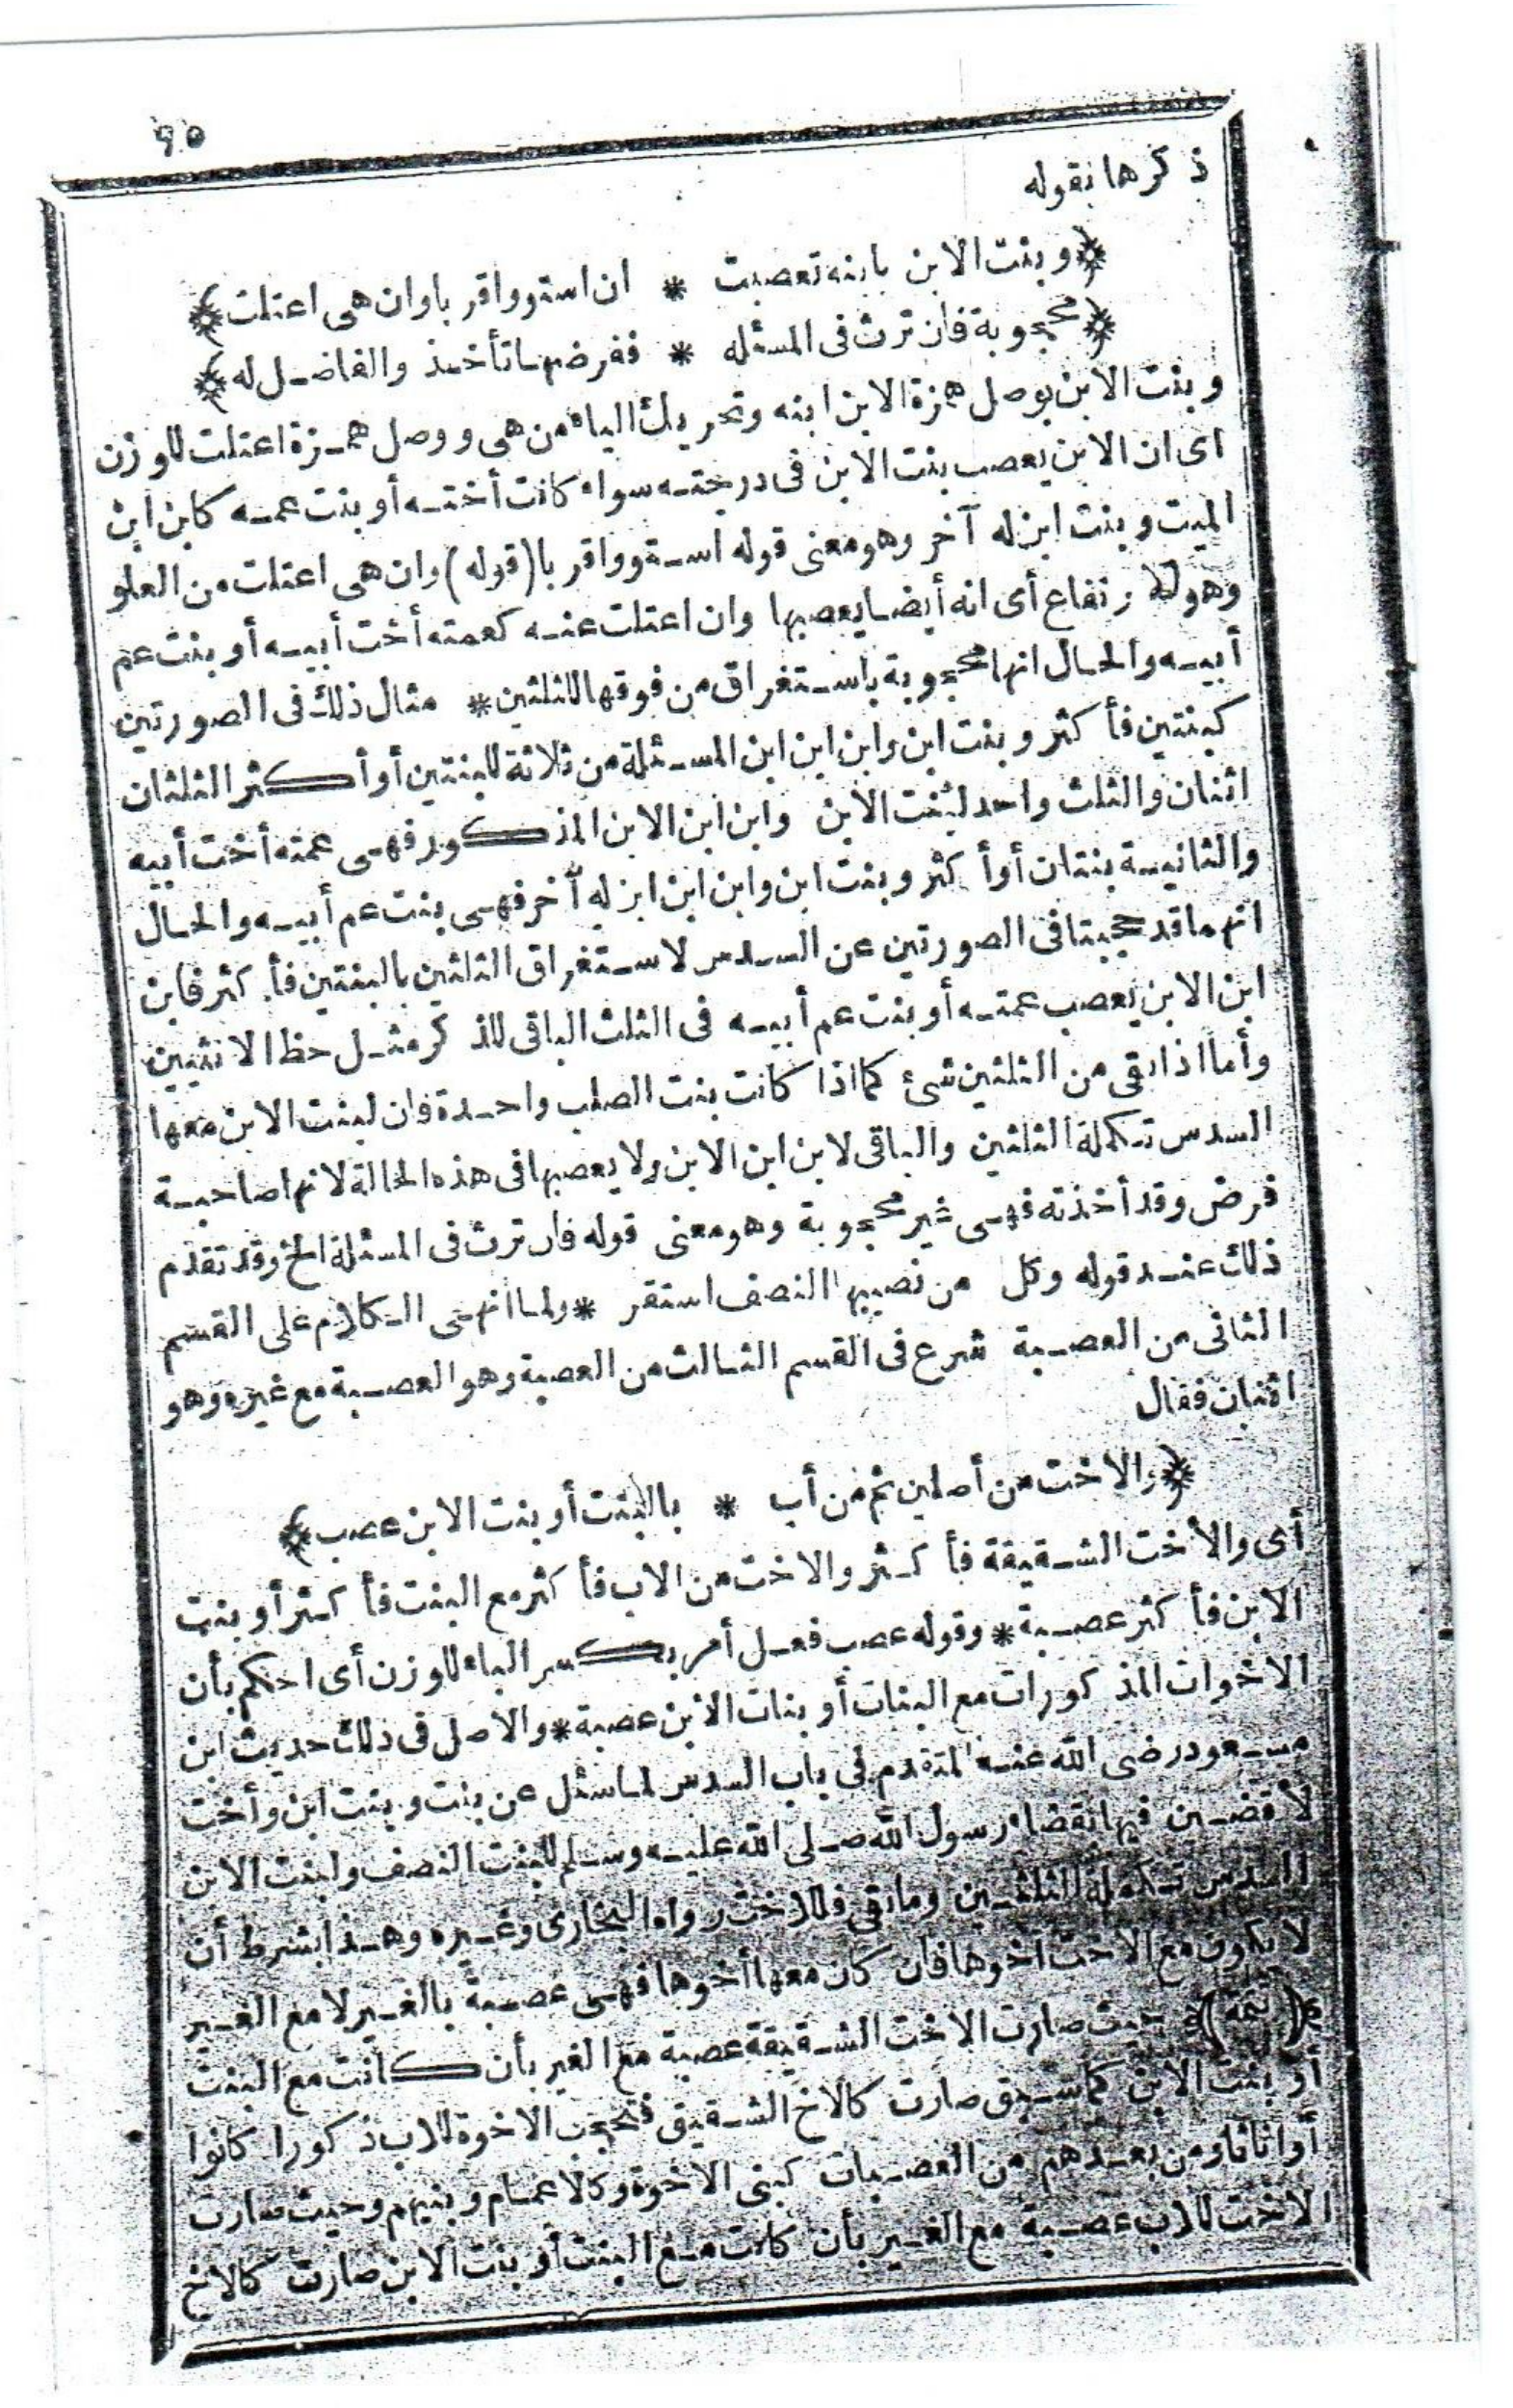 ٩٥
ذكرها بقوله
﴿وبنت الابن بابنه تعصبت * ان استووا قربا وان هى اعتلت﴾
﴿محجوبة فان ترث فى المسئله * ففرضها تأخذ والفاضل له﴾
وبنت الابن بوصل همزة الابن ابنه وتحريك الياء من هى ووصل همزة اعتلت للوزن
اى ان الابن يعصب بنت الابن فى درجته سواء كانت أخته أو بنت عمه كابن ابن
الميت وبنت ابن له آخر وهو معنى قوله استووا قربا (قوله) وان هى اعتلت من العلو
وهو الارتفاع أى انه أيضا يعصبها وان اعتلت عنه كعمته أخت أبيه أو بنت عم
أبيه والحال انها محجوبة باستغراق من فوقها للثلثين * مثال ذلك فى الصورتين
كبنتين فأكثر وبنت ابن وابن ابن ابن المسئلة من ثلاثة للبنتين أو أكثر الثلثان
اثنان والثلث واحد لبنت الابن وابن ابن الابن المذكور فهى عمته أخت أبيه
والثانية بنتان أو أكثر وبنت ابن وابن ابن ابن له آخر فهى بنت عم أبيه والحال
انهما قد حجبتا فى الصورتين عن السدس لاستغراق الثلثين بالبنتين فأكثر فابن
ابن الابن يعصب عمته أو بنت عم أبيه فى الثلث الباقى للذكر مثل حظ الانثيين
وأما اذا بقى من الثلثين شئ كما اذا كانت بنت الصلب واحدة فان لبنت الابن معها
السدس تكملة الثلثين والباقى لابن ابن الابن ولا يعصبها فى هذه الحالة لانها صاحبة
فرض وقد أخذته فهى غير محجوبة وهو معنى قوله فان ترث فى المسئلة الخ وقد تقدم
ذلك عند قوله وكل من نصيبها النصف استقر * ولما انهى الكلام على القسم
الثانى من العصبة شرع فى القسم الثالث من العصبة وهو العصبة مع غيره وهو
اثنان فقال
﴿والاخت من أصلين ثم من أب * بالبنت أو بنت الابن عصب﴾
أى والأخت الشقيقة فأكثر والاخت من الاب فأكثر مع البنت فأكثر أو بنت
الابن فأكثر عصبة * وقوله عصب فعل أمر بكسر الباء للوزن أى احكم بأن
الاخوات المذكورات مع البنات أو بنات الابن عصبة * والاصل فى ذلك حديث ابن
مسعود رضى الله عنه المتقدم فى باب السدس لما سئل عن بنت وبنت ابن وأخت
لأقضين فيها بقضاء رسول الله صلى الله عليه وسلم للبنت النصف ولبنت الابن
السدس تكملة الثلثين وما بقى فللاخت رواه البخارى وغيره وهذا بشرط أن
لا يكون مع الاخت اخوها فان كان معها أخوها فهى عصبة بالغير لا مع الغير
﴿تتمة﴾ حيث صارت الاخت الشقيقة عصبة مع الغير بأن كانت مع البنت
أو بنت الابن كما سبق صارت كالاخ الشقيق فتحجب الاخوة للاب ذكورا كانوا
أو اناثا ومن بعدهم من العصبات كبنى الاخوة وكالاعمام وبنيهم وحيث صارت
الاخت للاب عصبة مع الغير بأن كانت مع البنت أو بنت الابن صارت كالاخ